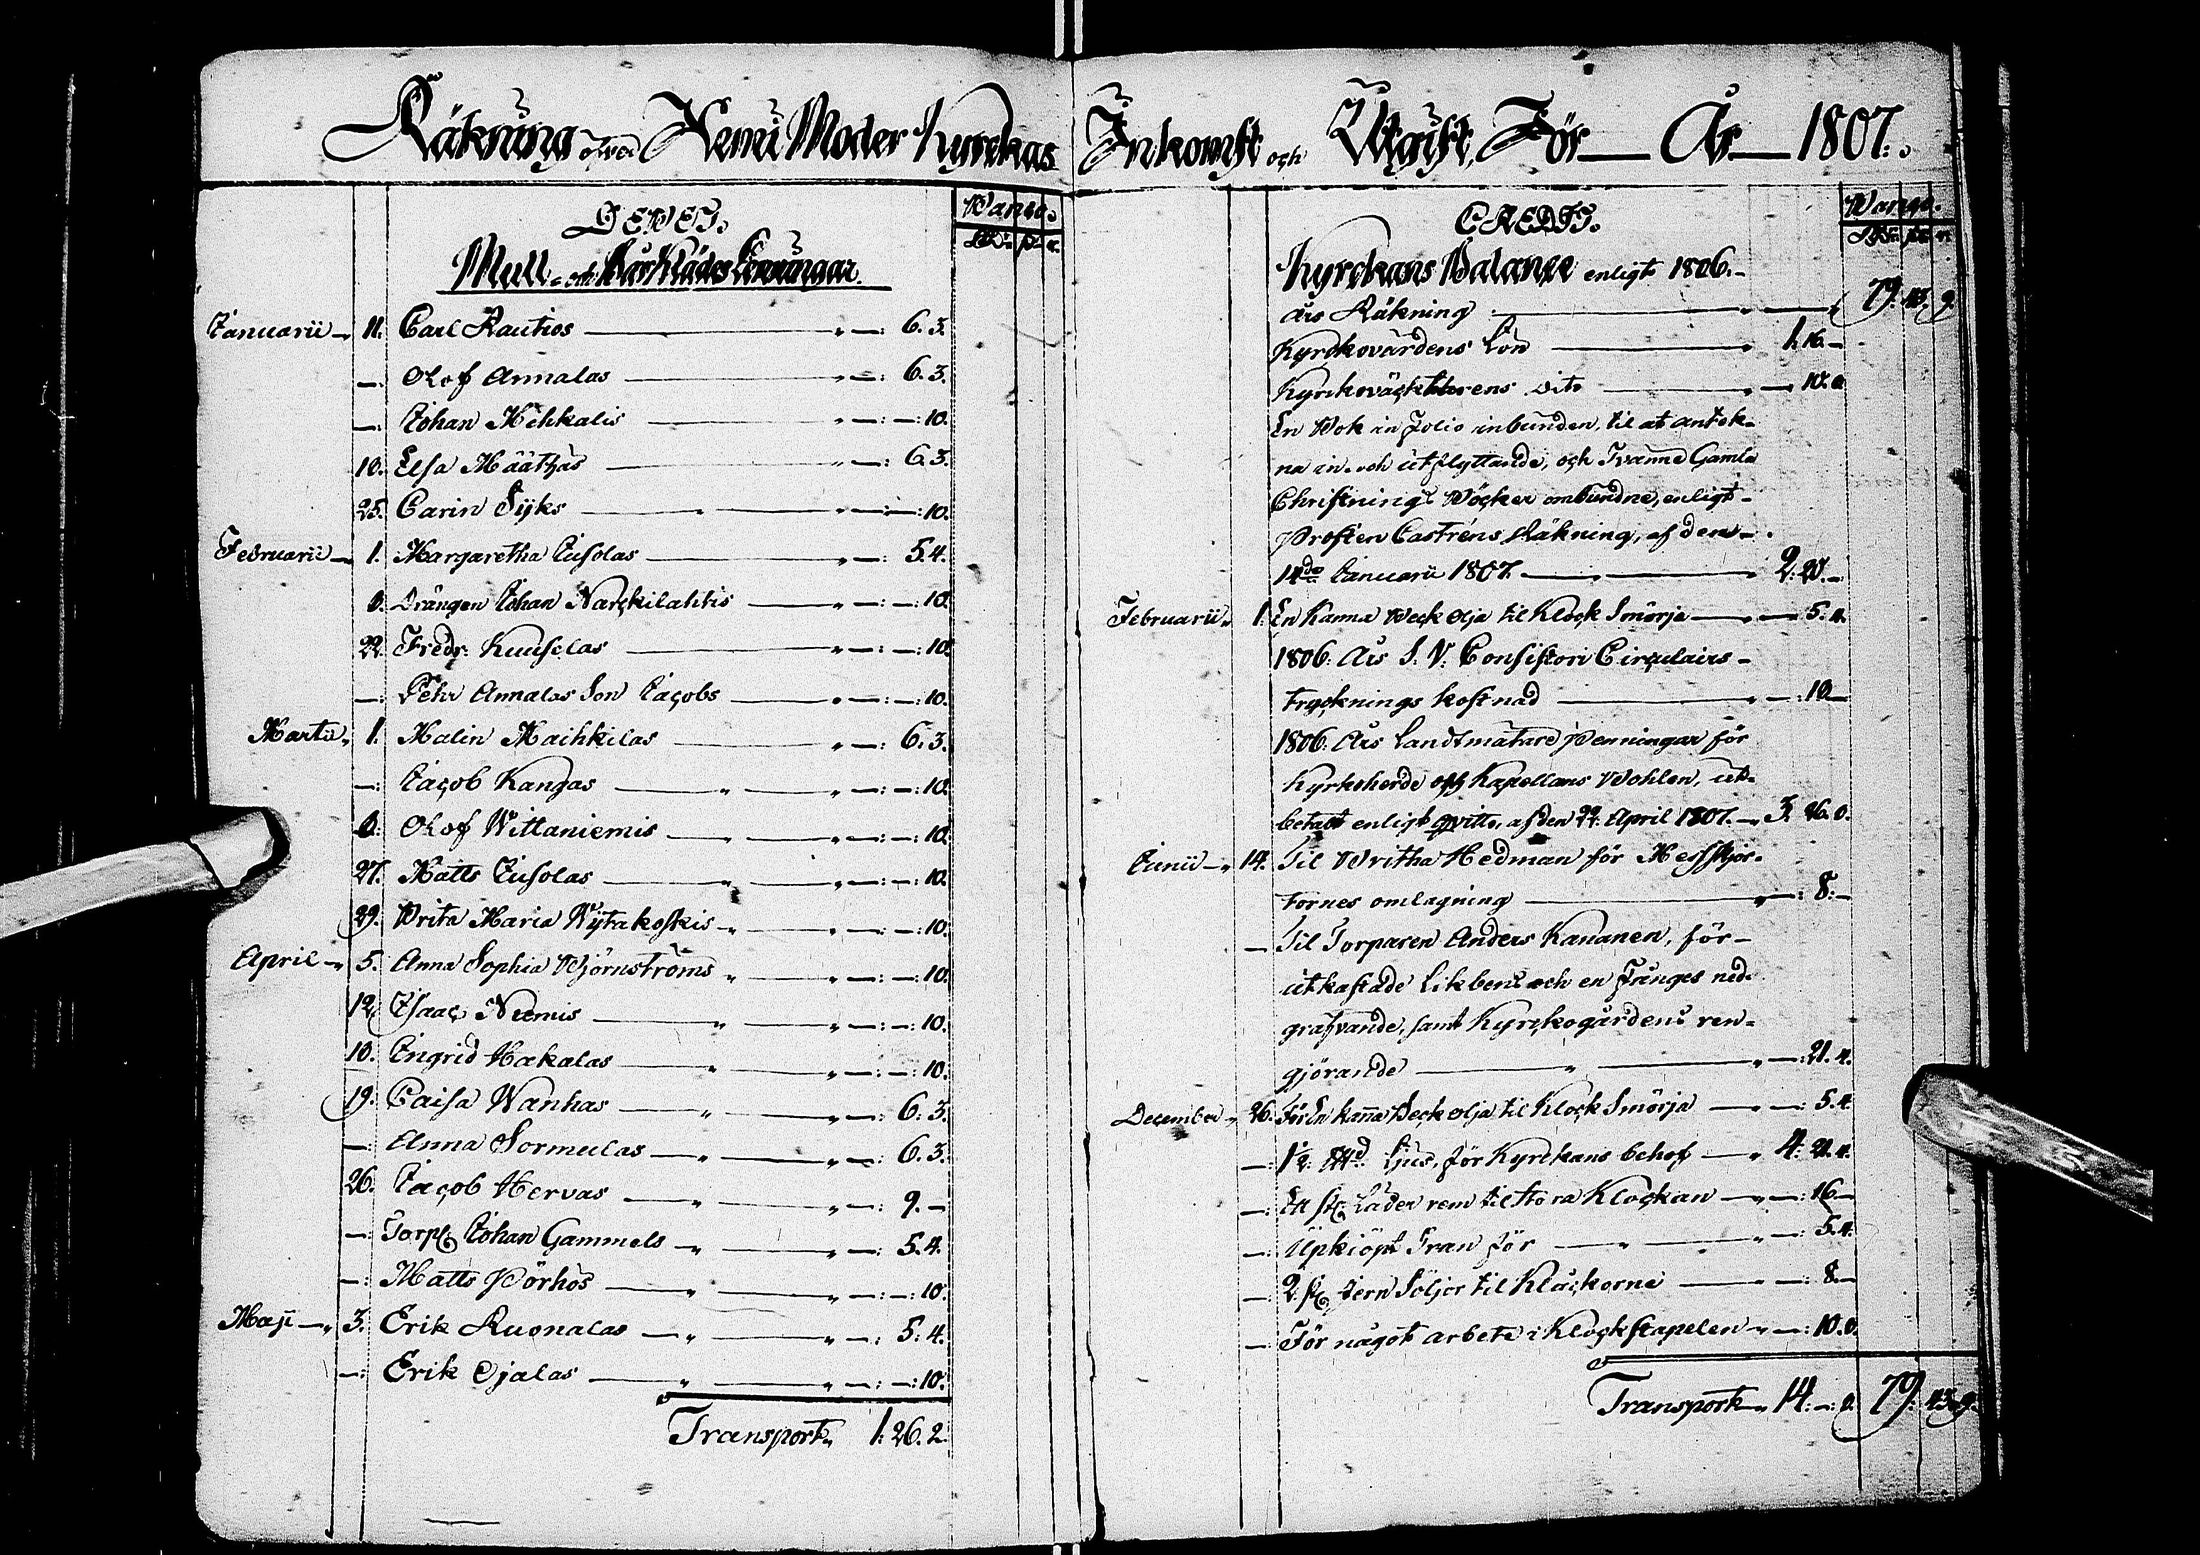 Räkning öfver Kemi Moder Kyrckas
DEBET.
Banco.
Mull- och Bårklädes Penningar.
Januarii 11. Carl Rautios 6. 3.
Olof Annalas 6. 3.
Johan Mehkalis 10.
10. Elsa Määttäs 6. 3.
25. Carin Syks 10.
Februarii 1. Margaretha Jusolas 5. 4.
Drängen Johan Narckilahtis 10.
22. Fredr. Kuuselas 10.
Pehr Annalas Son Jacobs 10.
Martii 1. Malin Maihkilas 6. 3.
Jacob Kangas 10.
Olof Wittaniemis 10.
27. Matts Jusolas 10.
29. Brita Maria Nytakoskis 10.
April 5. Anna Sophia Björnströms 10.
12. Isaac Niemis 10.
Ingrid Hakalas 10.
19. Caisa Wanhas 6. 3.
Anna Sormulas 6. 3.
26. Jacob Hervas 9. —
Torp. Johan Gammels 5. 4.
Matts Pörhös 10.
Maji 3. Erik Ruonalas 5. 4.
Erik Ojalas 10.
Transport 1. 26. 2.
Inkomst och Utgift, För År 1807.
CREDIT.
Banco.
Kyrckans Balance enligt 1806.
års Räkning 79. 43. 9.
Kyrckovärdens Lön 1. 16. —
Kyrckoväcktarens dito
En Bok in Folio inbunden, til at antek-
na in- och utflyttande, och Tvänne Gamla
Christnings Böcker ombundne, enligt
Prosten Castréns Räkning, af den
14de Januarii 1807. 2. 20. —
Februarii 1. En Kanna Beck olja til Klock Smörja 5. 4.
1806. Års S. V. Consistorii Circulairs
trycknings kostnad 10. —
1806. Års Landtmätare Penningar för
Kyrkoherde och Kapellans Bohlen, ut-
betalt enligt qvitto, af den 22. April 1807. 3. 26.
Junii 14. Til Britha Hedman för Messkjor-
tornes omlagning 8. —
Til Torparen Anders Kananen, för
utkastade Likbens och en Fånges ned-
grafvande, samt Kyrckogårdens ren-
gjörande 21. 4.
December 26. För En kanna Beck olja til Klock Smörja 5. 4.
Ljus, för Kyrckans behof 4.
Ett st. Läder rem til stora Klockan 16. —
Upkiöpt Tran för 5. 4.
2. st. Jern Söljor til Klåckorne 8. —
För något arbete i Klockstapelen 10.
Transport 14. 79. 43. 9.